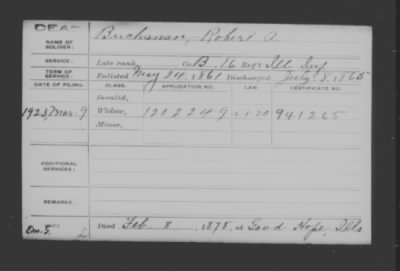 DEAF
NAME OF SOLDIER: Buchanan, Robert A.
SERVICE: Late rank, Co. B, 16 Reg't Ill. Inf.
TERM OF SERVICE: Enlisted May 24, 1861 Discharged July 8, 1865
DATE OF FILING. CLASS. APPLICATION NO. LAW. CERTIFICATE NO.
Invalid,
1923 Mar. 9 Widow, 1202249 941265
Minor,
ADDITIONAL SERVICES:
REMARKS:
Died Feb. 8, 1878, at Good Hope, Ills